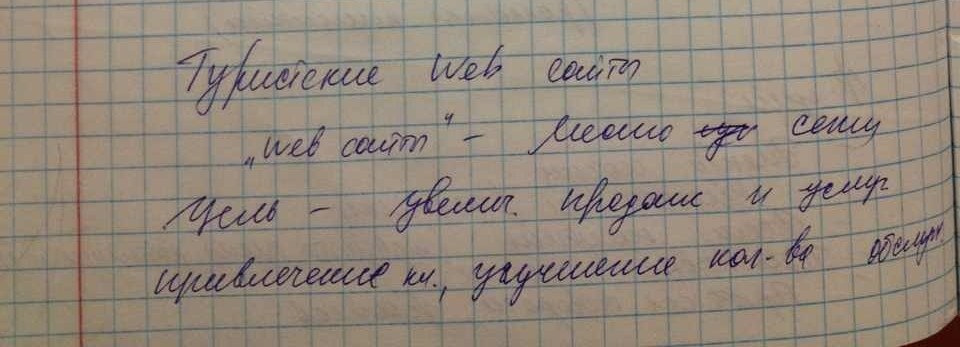 Туристские Web сайты
„Web сайты" – место сети
Цель – увелич. продаж и услуг
привлечение кл., улучшение кол-ва обслуж.